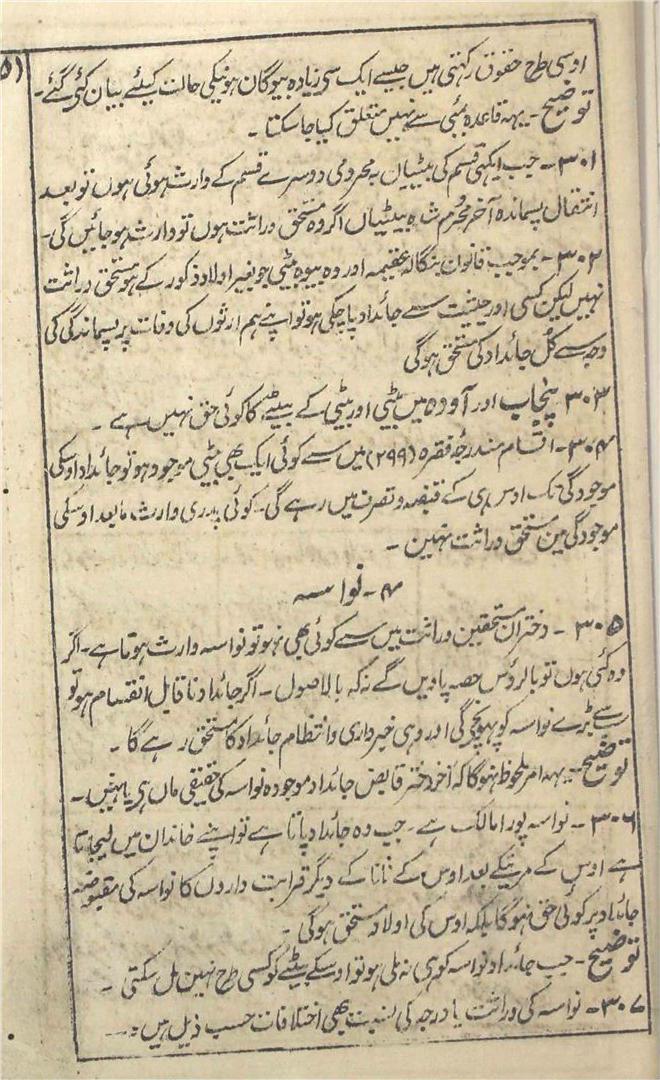 (۵
اوسی طرح حقوق رکہتی ہیں جیسے ایک سی زیادہ بیوگان ہونیکی حالت کیلئے بیان کئی گئے۔
توضیح۔ یہہ قاعدہ بمبئی سے نہیں متعلق کیا جاسکتا۔
۳۰۱۔ جب ایکہی قسم کی بیٹیاں بہ محرومی دوسرے قسم کے وارث ہوئی ہوں تو بعد
انتقال پسماندہ آخر محروم شدہ بیٹیاں اگر وہ مستحق وراثت ہوں تو وارث ہو جائیں گی۔
۳۰۲۔ بموجب قانون بنگالہ عقیمہ اور وہ بیوہ بیٹی جو بغیر اولاد ذکور کے ہو مستحق وراثت
نہیں لیکن کسی اور حیثیت سے جائداد پا چکی ہو تو اپنے ہم ارثوں کی وفات پر پسماندگی کی
وجہ سے کل جائداد کی مستحق ہوگی
۳۰۳ پنجاب اور آودہ میں بیٹی اور بیٹی کے بیٹے کا کوئی حق نہیں ہے۔
۳۰۴۔ اقسام مندرجہ فقرہ (۲۹۹) میں سے کوئی ایک بھی بیٹی موجود ہو تو جائداد اوسکی
موجودگی تک اوس ہی کے قبضہ و تصرف میں رہے گی۔ کوئی پدری وارث مابعد اوسکی
موجودگی مین مستحق وراثت نہین۔
۴۔ نواسہ
۳۰۵۔ دختران مستحقین وراثت میں سے کوئی بھی نہو تو نواسہ وارث ہوتا ہے۔ اگر
وہ کئی ہوں تو بالرؤس حصہ پاویں گے نہ کہ بالاصول۔ اگر جائداد ناقابل انقسام ہو تو
سب سے بڑے نواسہ کو پہونچیگی اور وہی خبرداری و انتظام جائداد کا مستحق رہے گا۔
توضیح۔ یہہ امر ملحوظ نہوگا کہ آخر دختر قابض جائداد موجودہ نواسہ کی حقیقی ماں ہی یا نہیں۔
۳۰۶۔ نواسہ پورا مالک ہے۔ جب وہ جائداد پاتا ہے تو اپنے خاندان میں لیجاتا
ہے اوس کے مرنیکے بعد اوس کے نانا کے دیگر قرابت داروں کا نواسہ کی مقبوضہ
جائداد پر کوئی حق نہوگا بلکہ اوس کی اولاد مستحق ہوگی۔
توضیح۔ جب جائداد نواسہ کو ہی نہ ملی ہو تو اوسکے بیٹے کو کسی طرح نہین مل سکتی۔
۳۰۷۔ نواسہ کی وراثت یا درجہ کی نسبت بھی اختلافات حسب ذیل ہیں:۔